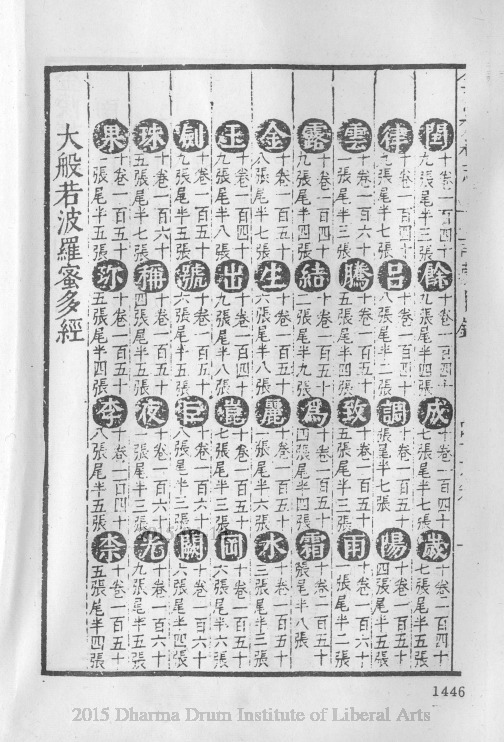 閏十卷一百四十九張尾半三張餘十卷一百四十九張尾半四張成十卷一百四十七張尾半七張歲十卷一百四十七張尾半五張
律十卷一百四十九張尾半七張呂十卷一百四十八張尾半二張調十卷一百五十張尾半七張陽十卷一百五十四張尾半五張
雲十卷一百六十一張尾半五張騰十卷一百五十五張尾半五張致十卷一百五十五張尾半三張雨十卷一百五十一張尾半二張
露十卷一百四十九張尾半五張結十卷一百五十二張尾半九張爲十卷一百五十四張尾半四張霜十卷一百五十張尾半八張
金十卷一百五十八張尾半七張生十卷一百五十六張尾半八張麗十卷一百五十張尾半六張水十卷一百五十三張尾半三張
玉十卷一百四十九張尾半八張出十卷一百四十九張尾半八張崑十卷一百五十七張尾半三張岡十卷一百五十六張尾半六張
劍十卷一百五十九張尾半五張號十卷一百五十六張尾半五張巨十卷一百六十八張尾半二張闕十卷一百六十六張尾半四張
珠十卷一百六十五張尾半七張稱十卷一百五十四張尾半五張夜十卷一百六十張尾半三張光十卷一百六十九張尾半五張
果十卷一百五十一張尾半五張珎十卷一百五十五張尾半四張李十卷一百四十八張尾半五張柰十卷一百五十五張尾半四張
大般若波羅蜜多經
1446
2015 Dharma Drum Institute of Liberal Arts